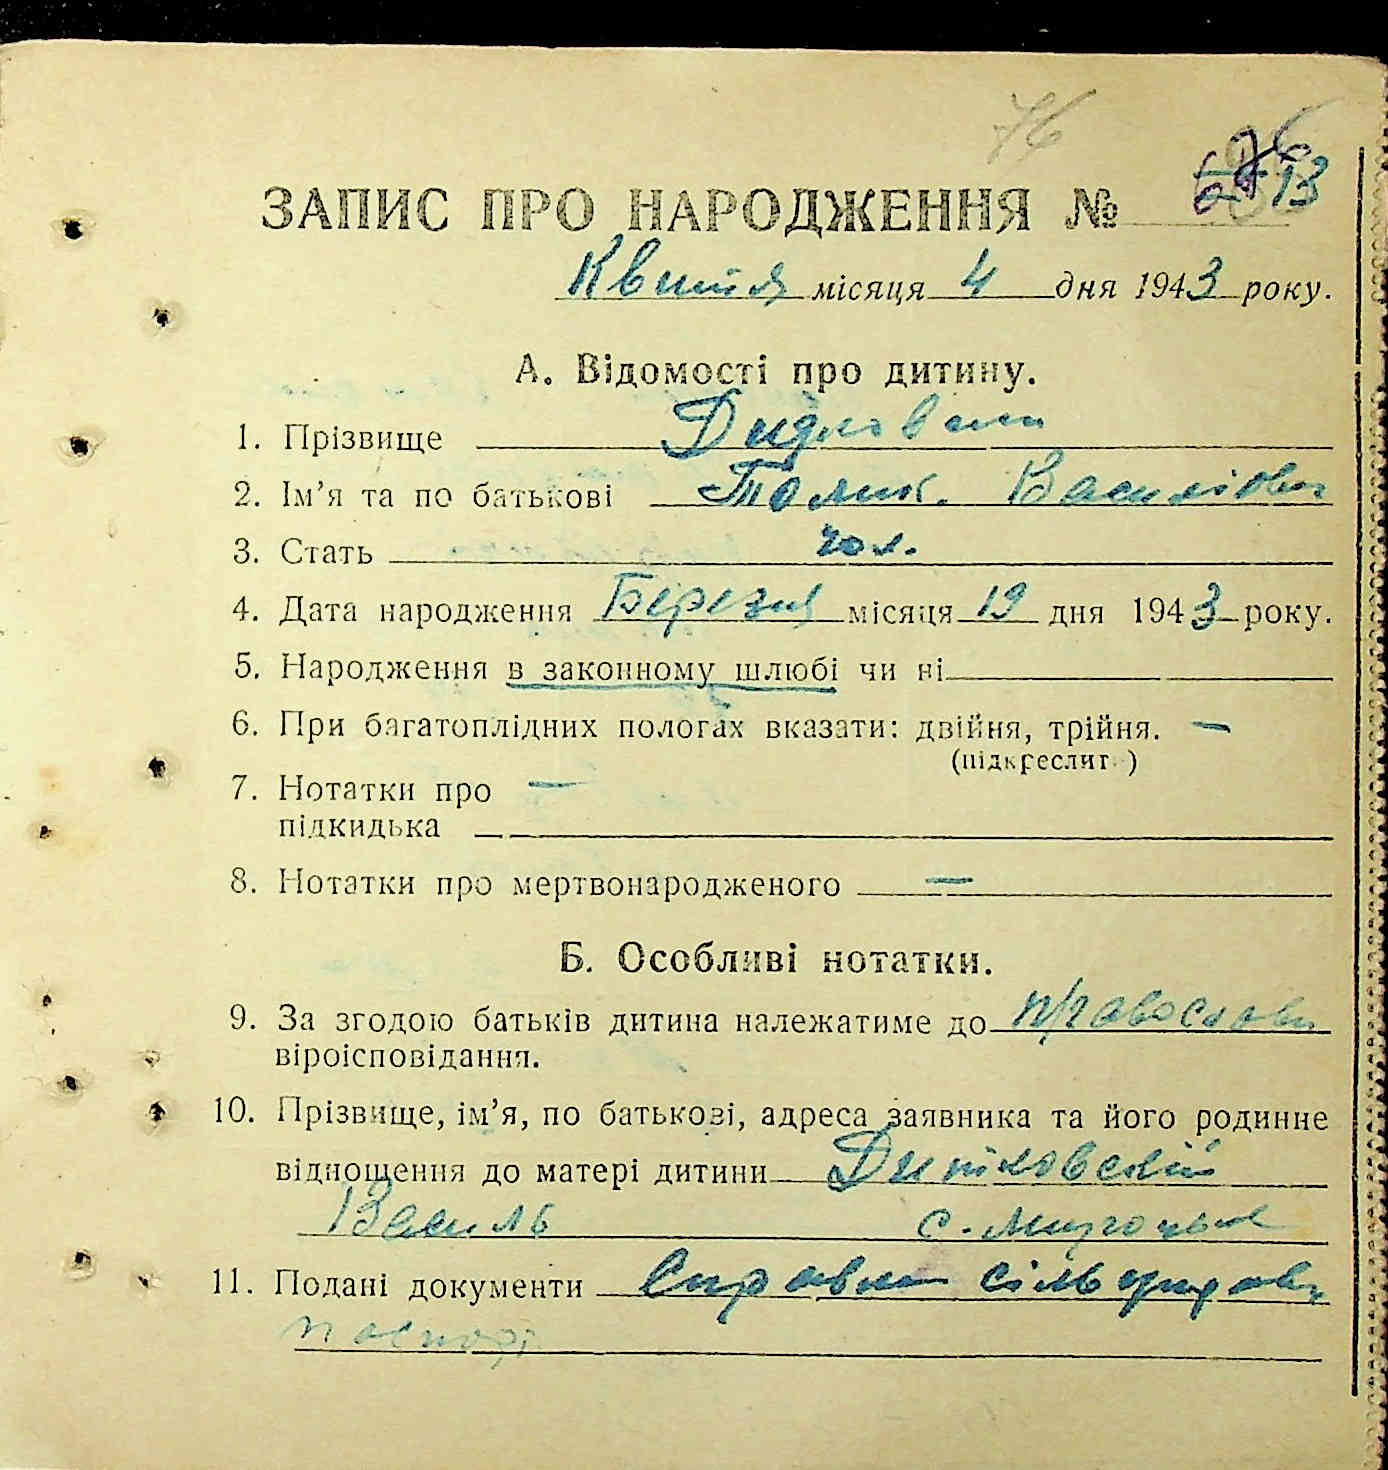 76
ЗАПИС ПРО НАРОДЖЕННЯ № 13
Квітня місяця 4 дня 1943 року.
А. Відомості про дитину.
1. Прізвище
2. Ім’я та по батькові Толик. Василіович
3. Стать чол.
4. Дата народження Березня місяця 19 дня 1943 року.
5. Народження в законному шлюбі чи ні
6. При багатоплідних пологах вказати: двійня, трійня. —
(підкреслит )
7. Нотатки про —
підкидька
8. Нотатки про мертвонародженого —
Б. Особливі нотатки.
9. За згодою батьків дитина належатиме до православн
віроісповідання.
10. Прізвище, ім’я, по батькові, адреса заявника та його родинне
відношення до матері дитини
Василь с.
11. Подані документи Справка сільуправи
паспорт